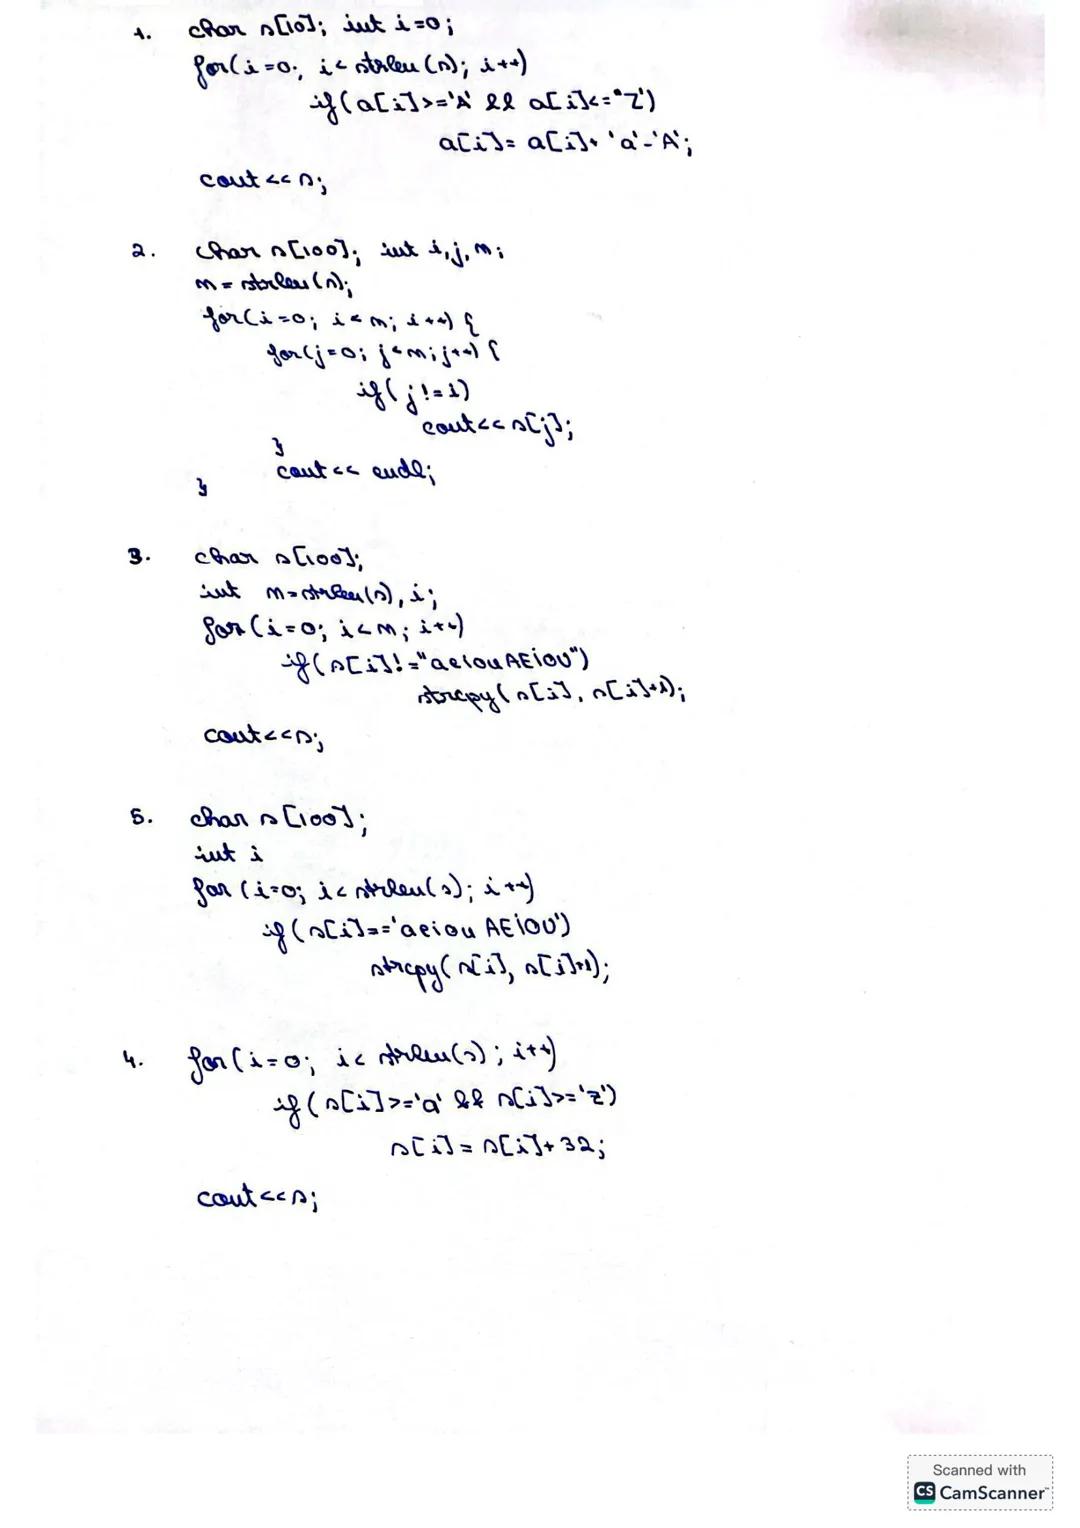 1. char s[10]; int i=0;
for(i=0; i<strlen(s); i++)
if(a[i]>='A' && a[i]<="Z')
a[i]= a[i]+ 'a'-'A';
cout<<s;
2. char s[100]; int i,j,m;
m=strlen(s);
for(i=0; i<m; i++) {
for(j=0; j<m; j++) {
if(j!=i)
cout<<s[j];
}
cout<< endl;
}
3. char s[100];
int m=strlen(s), i;
for(i=0; i<m; i++)
if(s[i]!="aeiouAEIOU")
strcpy(s[i], s[i]+1);
cout<<s;
5. char s[100];
int i
for (i=0; i<strlen(s); i++)
if(s[i]=='aeiou AEIOU')
strcpy(s[i], s[i]+1);
4. for(i=0; i<strlen(s); i++)
if(s[i]>='a' && s[i]>='z')
s[i]=s[i]+32;
cout<<s;
Scanned with
CS CamScanner